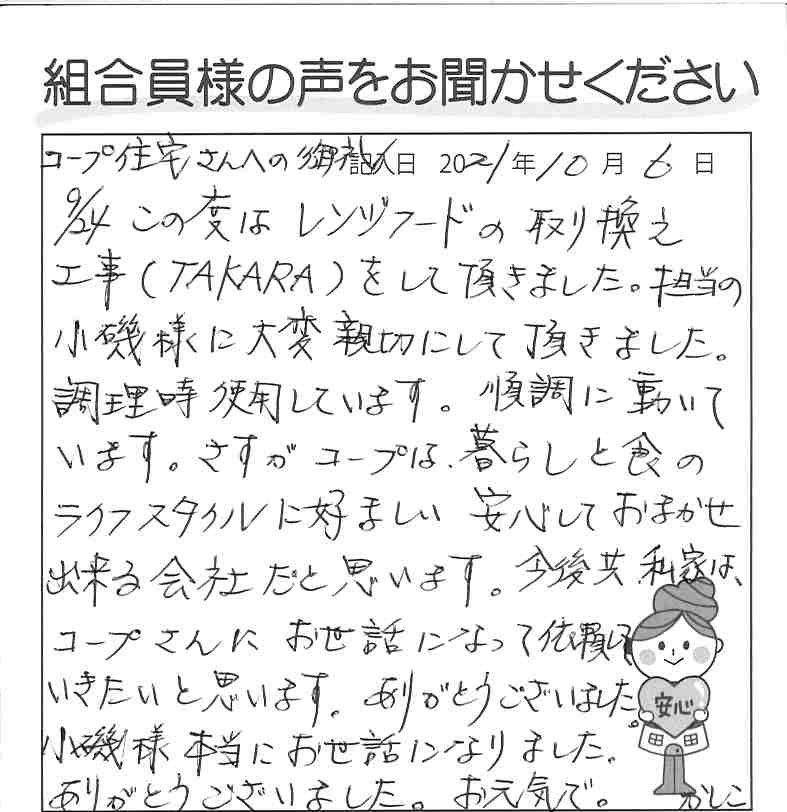 組合員様の声をお聞かせください
コープ住宅さんへの御礼 記入日 2021年10月6日
9/24 この度は レンジフードの取り換え
工事(TAKARA)をして頂きました。担当の
小磯様に大変親切にして頂きました。
調理時使用しています。順調に動いて
います。さすがコープは、暮らしと食の
ライフスタイルに好ましい 安心しておまかせ
出来る会社だと思います。今後共 私家は、
コープさんに お世話になって依頼して
いきたいと思います。ありがとうございました。
安心
小磯様 本当にお世話になりました。
ありがとうございました。お元気で。 かしこ